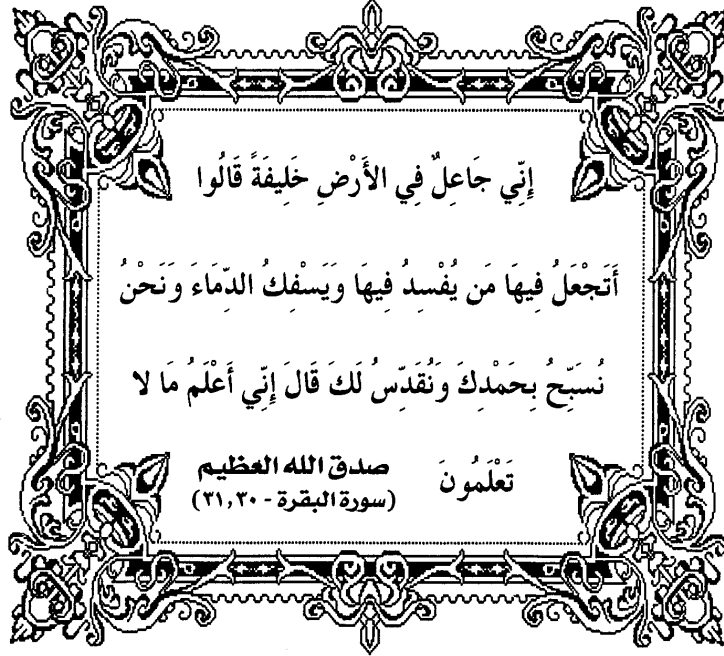 إِنِّي جَاعِلٌ فِي الأَرْضِ خَلِيفَةً قَالُوا
أَتَجْعَلُ فِيهَا مَن يُفْسِدُ فِيهَا وَيَسْفِكُ الدِّمَاءَ وَنَحْنُ
نُسَبِّحُ بِحَمْدِكَ وَنُقَدِّسُ لَكَ قَالَ إِنِّي أَعْلَمُ مَا لا
تَعْلَمُونَ صدق الله العظيم
(سورة البقرة - ٣١,٣٠)